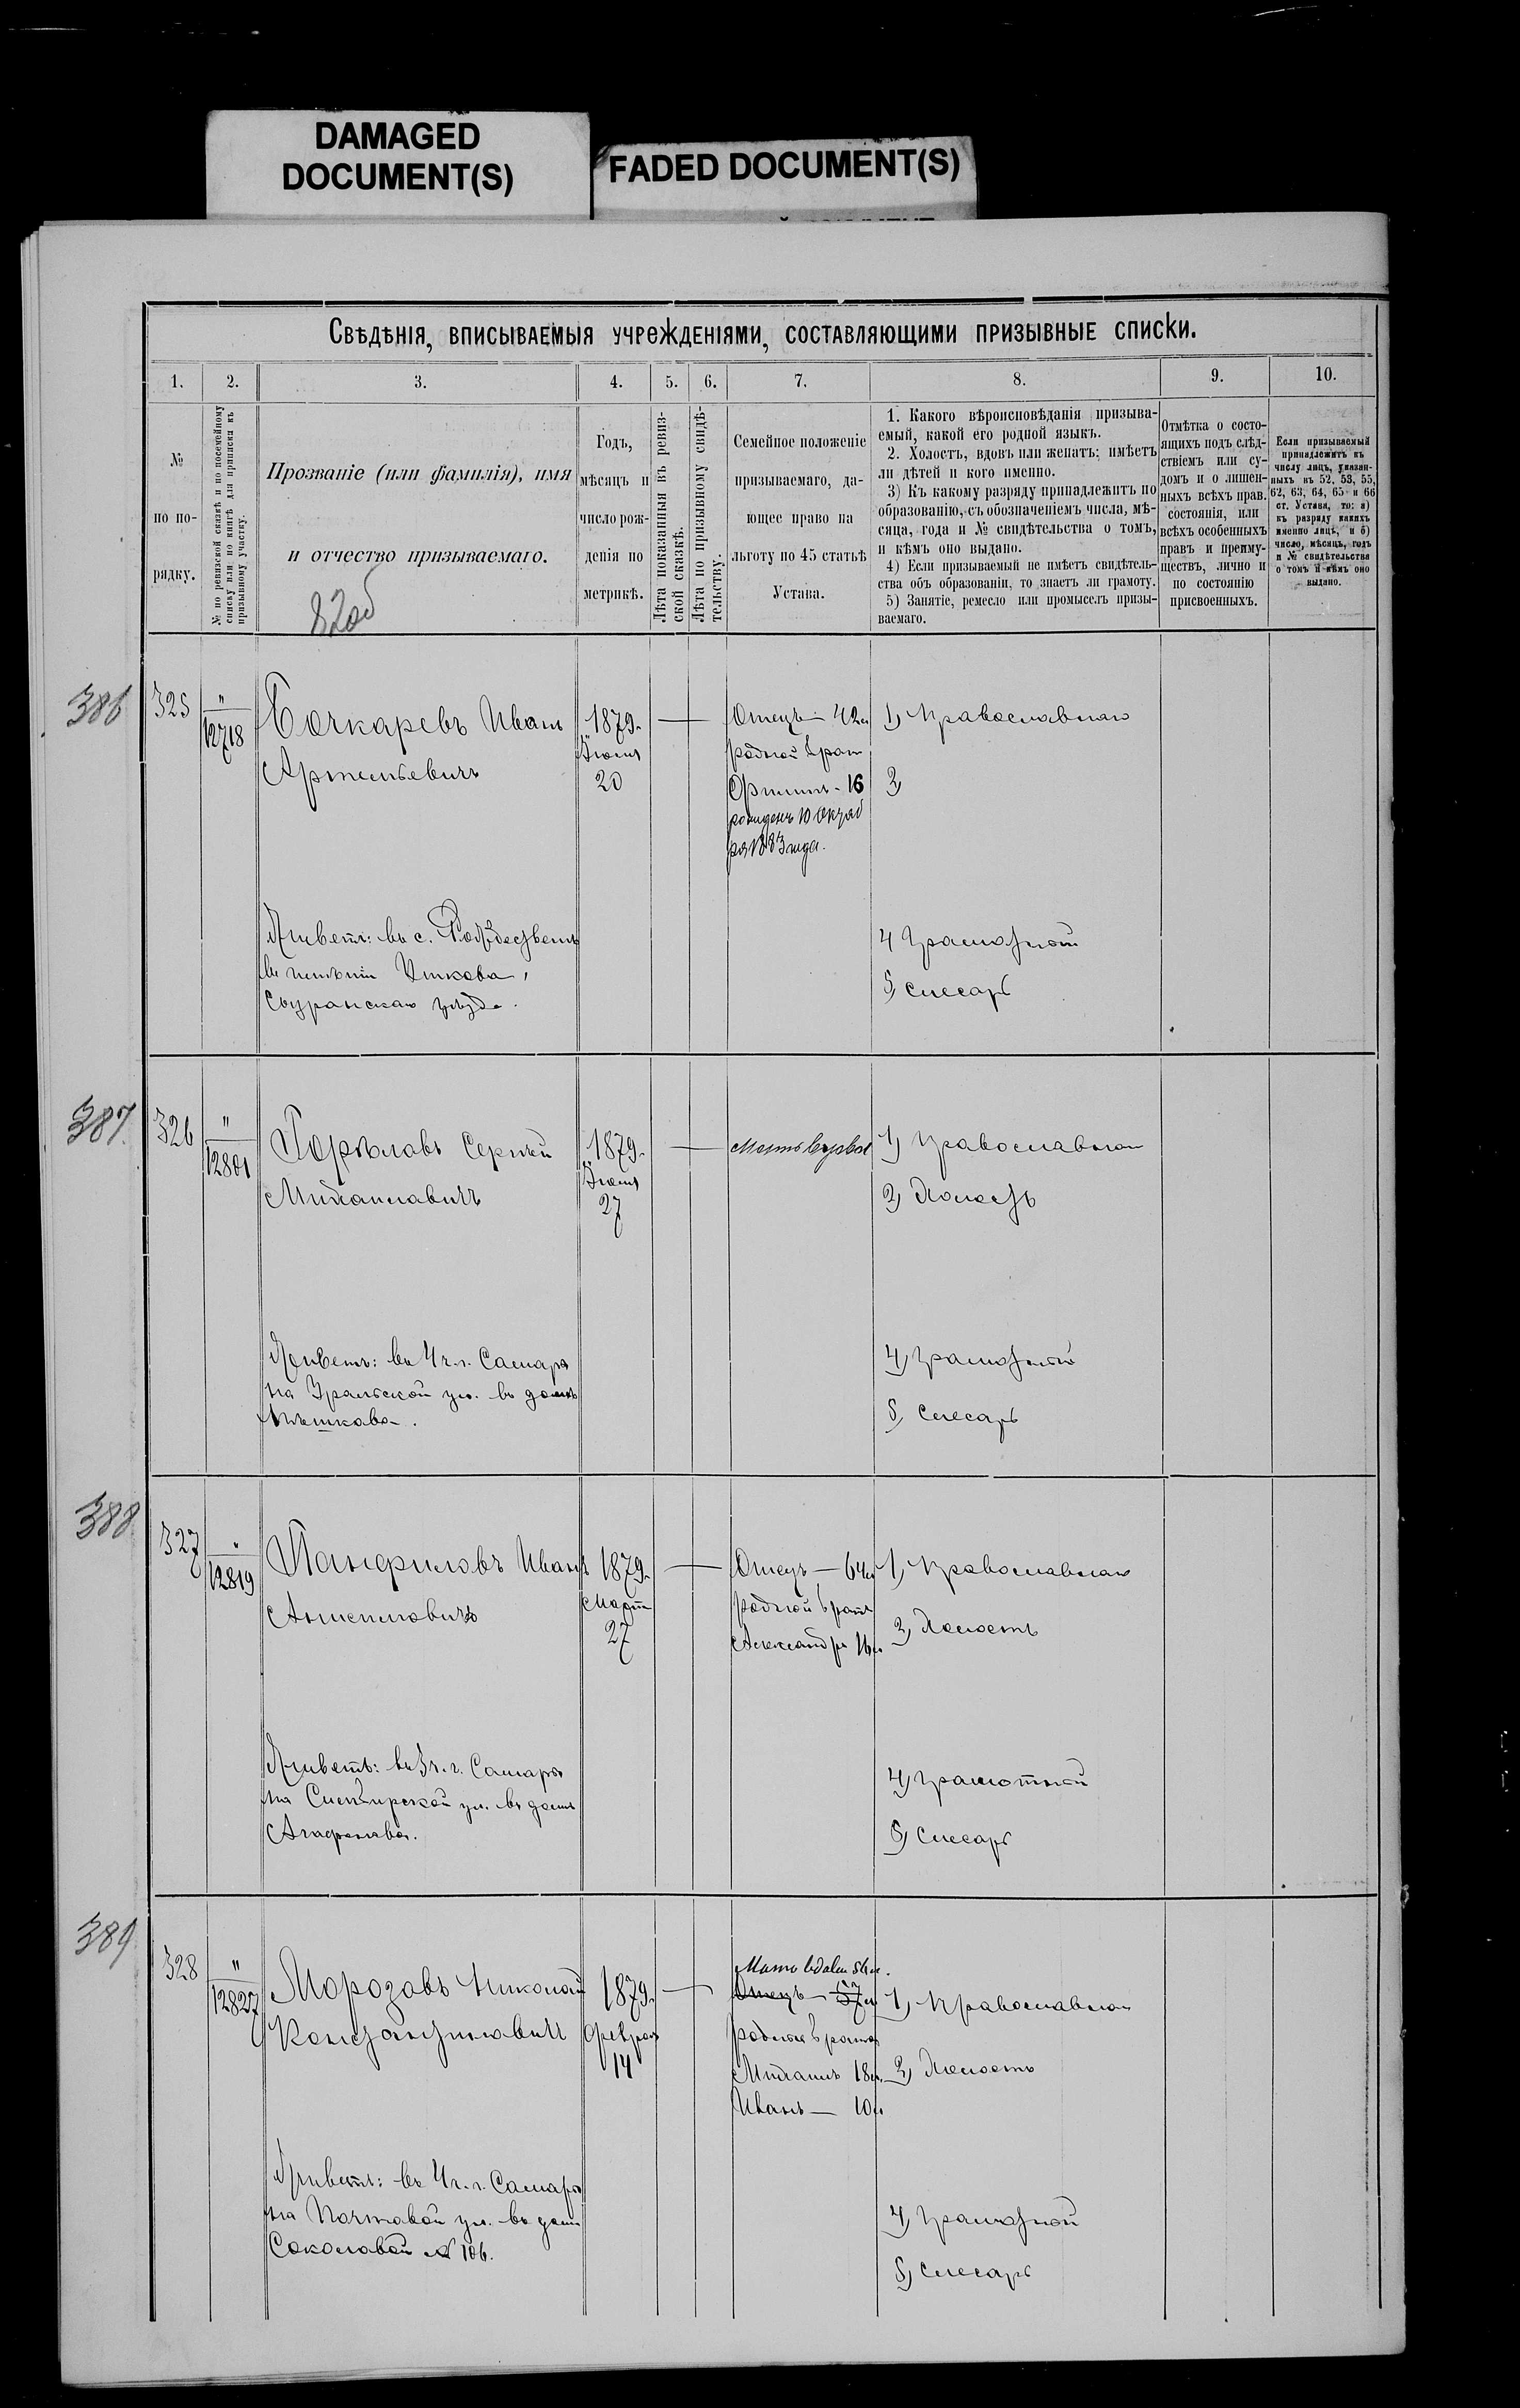 DAMAGED
DOCUMENT(S)
FADED DOCUMENT(S)
Свѣдѣнія, вписываемыя учрежденіями, составляющими призывные списки.
1. 2. 3. 4. 5. 6. 7. 8. 9. 10.
№
по по-
рядку.
№ по ревизской сказкѣ и по посемейному
списку или по книгѣ для приписки къ
призывному участку.
Прозваніе (или фамилія), имя
и отчество призываемаго.
82об
Годъ,
мѣсяцъ и
число рож-
денія по
метрикѣ.
Лѣта показанныя въ ревиз-
ской сказкѣ.
Лѣта по призывному свидѣ-
тельству.
Семейное положеніе
призываемаго, да-
ющее право на
льготу по 45 статьѣ
Устава.
1. Какого вѣроисповѣданія призыва-
емый, какой его родной языкъ.
2. Холостъ, вдовъ или женатъ; имѣетъ
ли дѣтей и кого именно.
3) Къ какому разряду принадлежитъ по
образованію, съ обозначеніемъ числа, мѣ-
сяца, года и № свидѣтельства о томъ,
и кѣмъ оно выдано.
4) Если призываемый не имѣетъ свидѣтель-
ства объ образованіи, то знаетъ ли грамоту.
5) Занятіе, ремесло или промыселъ призы-
ваемаго.
Отмѣтка о состо-
ящихъ подъ слѣд-
ствіемъ или су-
домъ и о лишен-
ныхъ всѣхъ прав.
состоянія, или
всѣхъ особенныхъ
правъ и преиму-
ществъ, лично и
по состоянію
присвоенныхъ.
Если призываемый
принадлежитъ къ
числу лицъ, указан-
ныхъ въ 52, 53, 55,
62, 63, 64, 65 и 66
ст. Устава, то: а)
къ разряду какихъ
именно лицъ, и б)
число, мѣсяцъ, годъ
и № свидѣтельства
о томъ и кѣмъ оно
выдано.
386
325
"
12718
Бочкаревъ Иванъ
Артемьевичъ
1879.
Іюня
20
Отецъ - 42л
родной братъ
16
рожденъ 10 Октяб
ря 1883 года.
1) Православнаго
2)
Живетъ: въ с. Рождествен
въ имѣніи
Сызранскаго уѣзда.
4 Грамотной
5) Слесарь
387
326
"
12801
Горѣловъ Сергѣй
Михаиловичъ
1879.
Іюня
27
Мать вдова
1) Православнаго
2) Холостъ
Живетъ: въ 4 ч. г. Самара
на Уральской ул. въ домѣ
4) Грамотной
5) Слесарь
388
327
"
12819
Панфиловъ Иванъ
1879.
Марта
27
Отецъ - 64л
родной братъ
Александръ 16л.
1) Православнаго
2) Холостъ
Живетъ: въ 3 ч. г. Самара
на Симбирской ул. въ домѣ
Агафонова.
4) Грамотной
5) Слесарь
389
328
"
12827
Морозовъ Николай
Константиновичъ
1879.
Февраля
14
Мать вдова 54л.
Отецъ - 57л
родные братья
Михаилъ 18л.
Иванъ - 10л
1) Православнаго
2) Холостъ
Живетъ: въ 4 ч. г. Самара
на Почтовой ул. въ домѣ
Соколовой № 106.
4) Грамотной
5) Слесарь